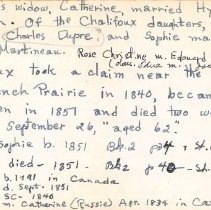 s widow, Catherine, married Hy
n. Of the Chalifoux daughters,
Charles Dupre, and Sophie ma
Martineau. Rose Christine m. Edouard
ux took a claim near the
ench Prairie in 1840, becam
en in 1851 and died two w
September 26, "aged 62."
Sophie b. 1851 Bk2 p4
died - 1851 - Bk2 p40 - St.
b. 1791 in Canada
d. Sept. 1851
SC - 1840
m. Catherine (Russie) Apr 1834 in Ca